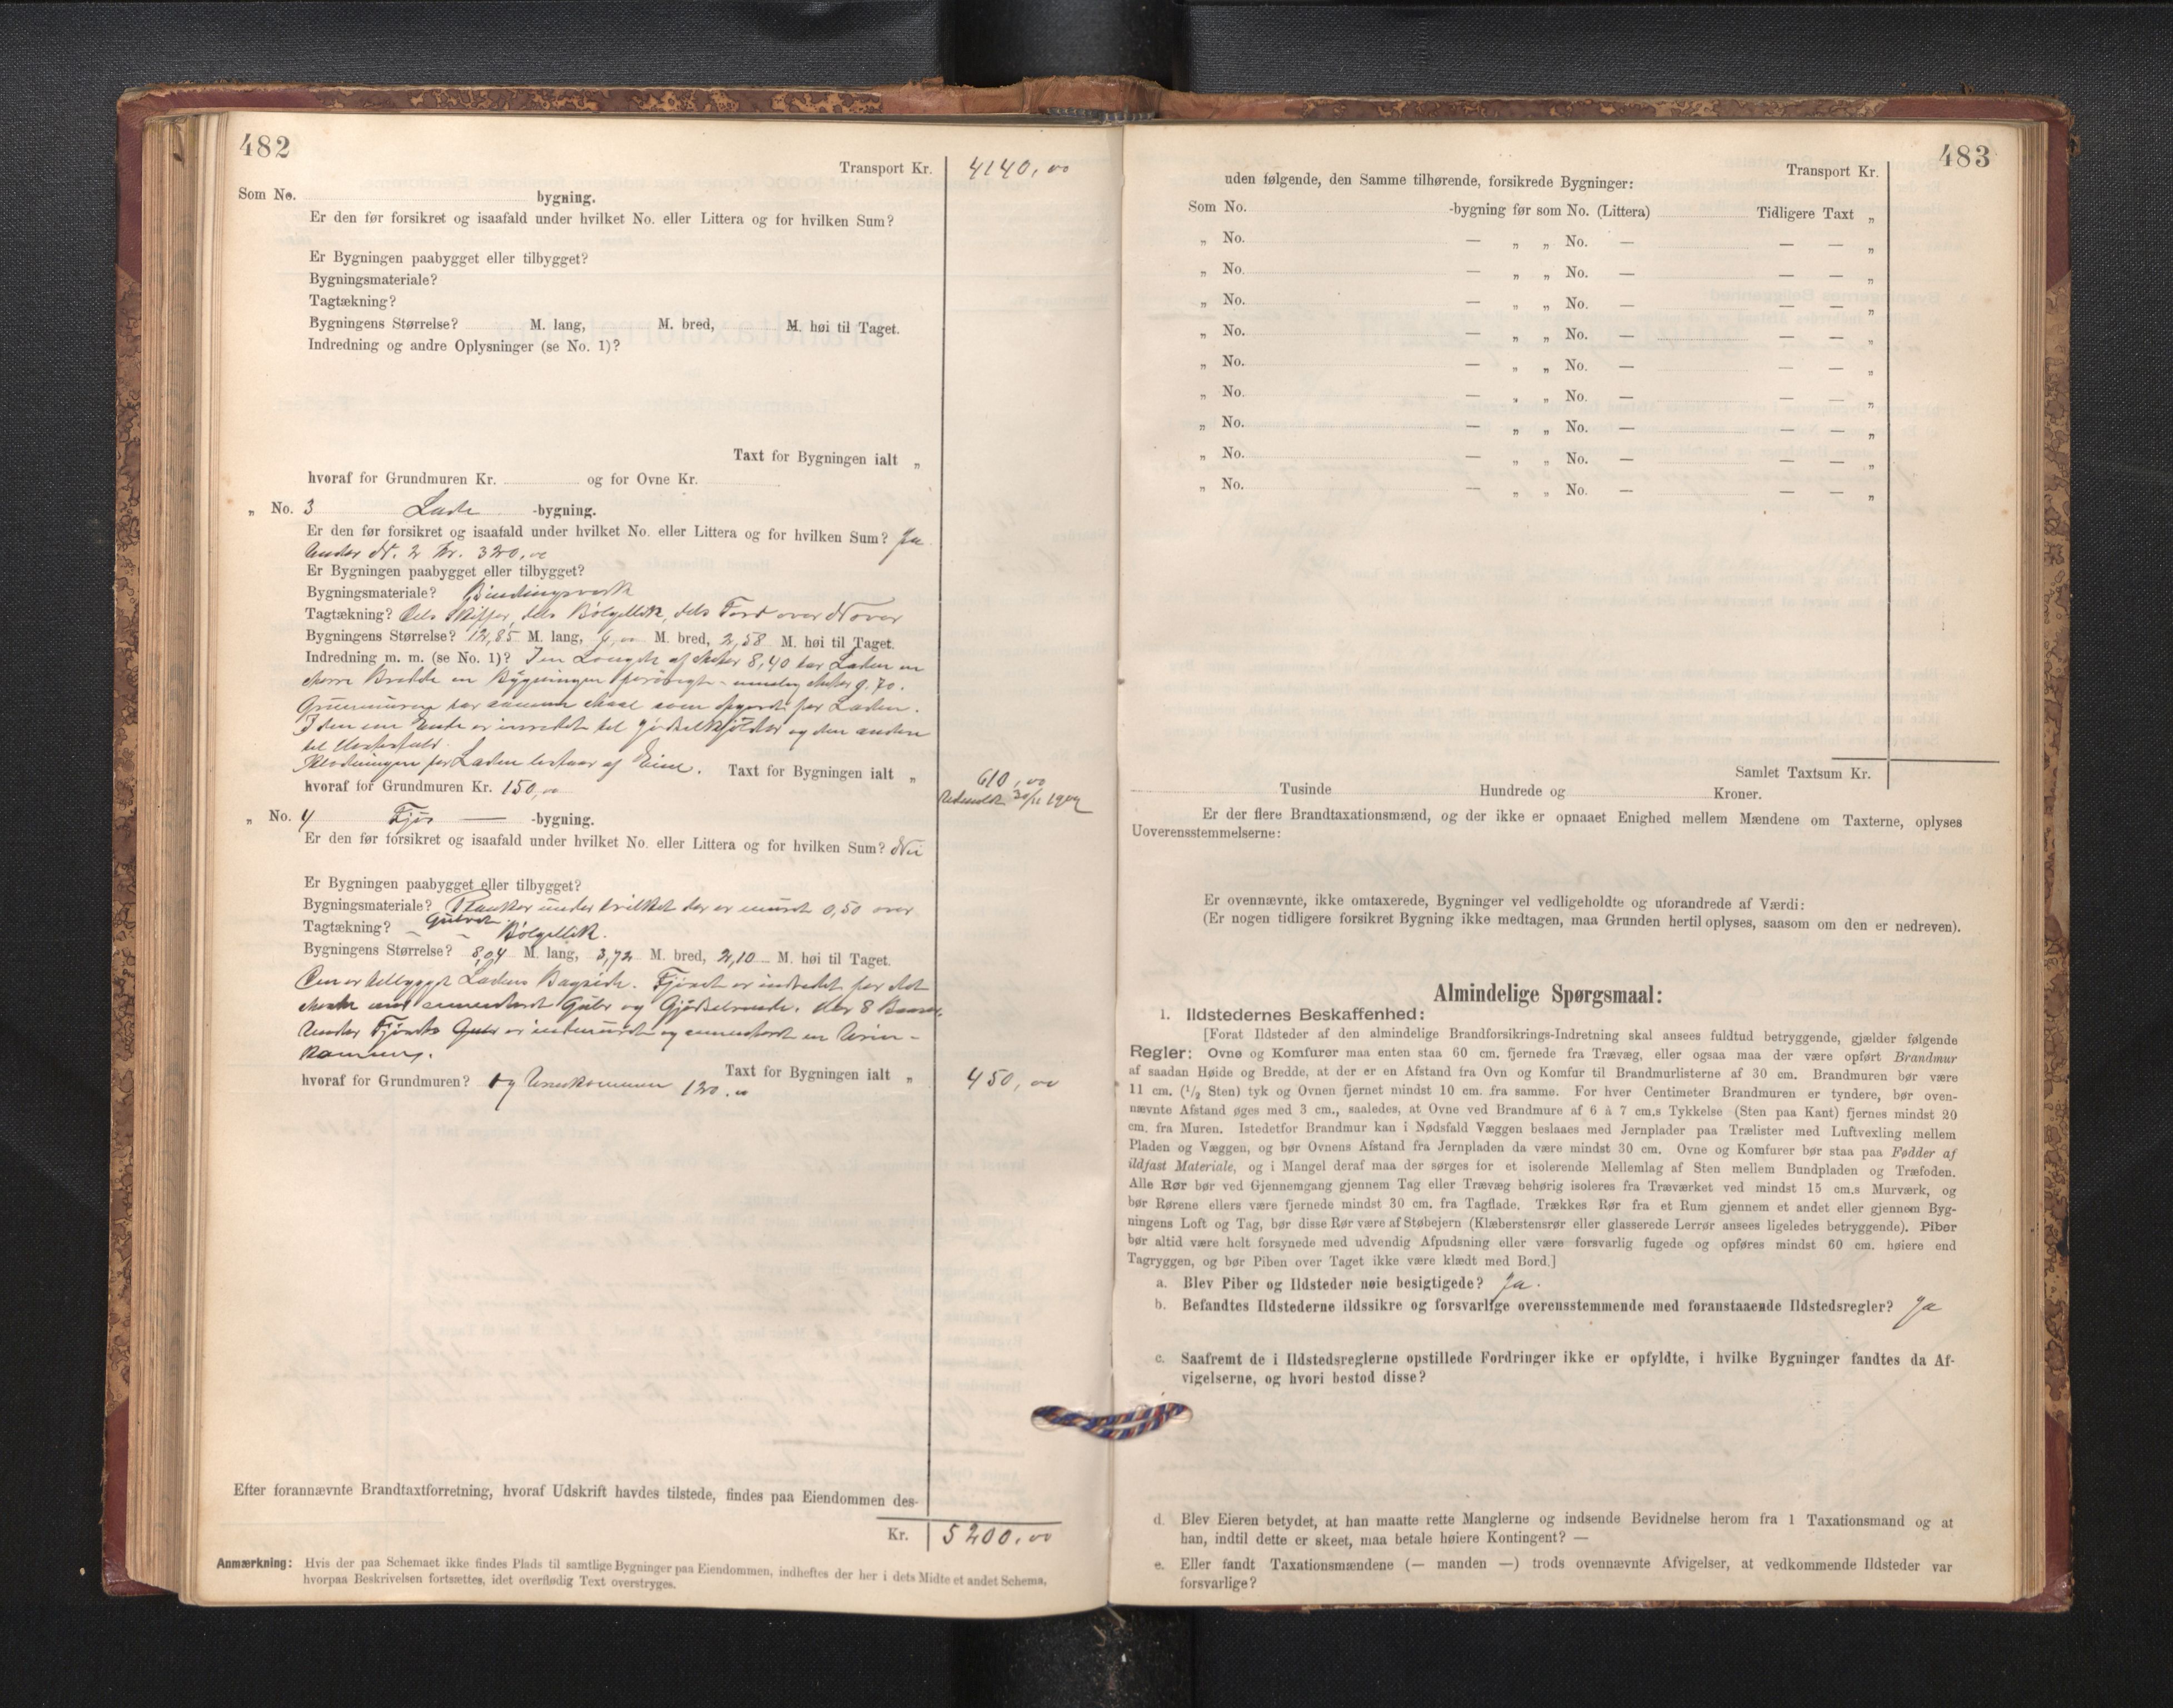 482
Transport Kr. 4140,00
Som No. bygning.
Er den før forsikret og isaafald under hvilket No. eller Littera og for hvilken Sum?
Er Bygningen paabygget eller tilbygget?
Bygningsmateriale?
Tagtækning?
Bygningens Størrelse? M. lang, M. bred, M. høi til Taget.
Indredning og andre Oplysninger (se No. 1)?
Taxt for Bygningen ialt „
hvoraf for Grundmuren Kr. og for Ovne Kr.
„ No. 3 Lade -bygning.
Er den før forsikret og isaafald under hvilket No. eller Littera og for hvilken Sum? Ja
Under N. 2 Kr. 320,00
Er Bygningen paabygget eller tilbygget?
Bygningsmateriale? Bindingsverk
Tagtækning? Dels Skiffer, dels Bølgeblik, dels Tord over Never
Bygningens Størrelse? 12,85 M. lang, 6,00 M. bred, 2,58 M. høi til Taget.
Indredning m. m. (se No. 1)? I en Længde af Meter 8,40 har Laden en
større Bredde en Bygningen forøvrigt - nemlig Meter 9,70.
Grunmuren har samme Maal som opgivet for Laden.
I den ene Ende er inredet til Gjødselkjelder og den anden
til
Klædningen for Laden bestaar af Eine. Taxt for Bygningen ialt „ 610,00
hvoraf for Grundmuren Kr. 150,00
Udmeldt 30/11 19
„ No. 4 Fjøs -bygning.
Er den før forsikret og isaafald under hvilket No. eller Littera og for hvilken Sum? Nei
Er Bygningen paabygget eller tilbygget?
Bygningsmateriale? Planker under hvilket der er muret 0,50 over
Gulvet
Tagtækning? Bølgeblik.
Bygningens Størrelse? 8,04 M. lang, 3,72 M. bred, 2,10 M. høi til Taget.
Den er tilbygget Ladens Bagside. Fjøset er indredet for det
meste med cementeret Gulv og Gjødselrende. Har 8 Baase.
Under Fjøsets Gulv er indmuret og cementeret en Urin-
komming.
Taxt for Bygningen ialt „ 450,00
hvoraf for Grundmuren? og Urinkommen 120,00
Efter forannævnte Brandtaxtforretning, hvoraf Udskrift havdes tilstede, findes paa Eiendommen des-
Kr. 5200,00
Anmærkning: Hvis der paa Schemaet ikke findes Plads til samtlige Bygninger paa Eiendommen, indheftes der her i dets Midte et andet Schema,
hvorpaa Beskrivelsen fortsættes, idet overflødig Text overstryges.
483
Transport Kr.
uden følgende, den Samme tilhørende, forsikrede Bygninger:
Som No. -bygning før som No. (Littera) Tidligere Taxt „
„ No. — „ „ No. — — — „
„ No. — „ „ No. — — — „
„ No. — „ „ No. — — — „
„ No. — „ „ No. — — — „
„ No. — „ „ No. — — — „
„ No. — „ „ No. — — — „
„ No. — „ „ No. — — — „
„ No. — „ „ No. — — — „
„ No. — „ „ No. — — — „
Samlet Taxtsum Kr.
Tusinde Hundrede og Kroner.
Er der flere Brandtaxationsmænd, og der ikke er opnaaet Enighed mellem Mændene om Taxterne, oplyses
Uoverensstemmelserne:
Er ovennævnte, ikke omtaxerede, Bygninger vel vedligeholdte og uforandrede af Værdi:
(Er nogen tidligere forsikret Bygning ikke medtagen, maa Grunden hertil oplyses, saasom om den er nedreven).
Almindelige Spørgsmaal:
1. Ildstedernes Beskaffenhed:
[Forat Ildsteder af den almindelige Brandforsikrings-Indretning skal ansees fuldtud betryggende, gjælder følgende
Regler: Ovne og Komfurer maa enten staa 60 cm. fjernede fra Trævæg, eller ogsaa maa der være opført Brandmur
af saadan Høide og Bredde, at der er en Afstand fra Ovn og Komfur til Brandmurlisterne af 30 cm. Brandmuren bør være
11 cm. (1/2 Sten) tyk og Ovnen fjernet mindst 10 cm. fra samme. For hver Centimeter Brandmuren er tyndere, bør oven-
nævnte Afstand øges med 3 cm., saaledes, at Ovne ved Brandmure af 6 à 7 cm.s Tykkelse (Sten paa Kant) fjernes mindst 20
cm. fra Muren. Istedetfor Brandmur kan i Nødsfald Væggen beslaaes med Jernplader paa Trælister med Luftvexling mellem
Pladen og Væggen, og bør Ovnens Afstand fra Jernpladen da være mindst 30 cm. Ovne og Komfurer bør staa paa Fødder af
ildfast Materiale, og i Mangel deraf maa der sørges for et isolerende Mellemlag af Sten mellem Bundpladen og Træfoden.
Alle Rør bør ved Gjennemgang gjennem Tag eller Trævæg behørig isoleres fra Træværket ved mindst 15 cm.s Murværk, og
bør Rørene ellers være fjernede mindst 30 cm. fra Tagflade. Trækkes Rør fra et Rum gjennem et andet eller gjennem Byg-
ningens Loft og Tag, bør disse Rør være af Støbejern (Klæberstensrør eller glasserede Lerrør ansees ligeledes betryggende). Piber
bør altid være helt forsynede med udvendig Afpudsning eller være forsvarlig fugede og opføres mindst 60 cm. høiere end
Tagryggen, og bør Piben over Taget ikke være klædt med Bord.]
a. Blev Piber og Ildsteder nøie besigtigede? Ja.
b. Befandtes Ildstederne ildssikre og forsvarlige overensstemmende med foranstaaende Ildstedsregler? Ja
c. Saafremt de i Ildstedsreglerne opstillede Fordringer ikke er opfyldte, i hvilke Bygninger fandtes da Af-
vigelserne, og hvori bestod disse?
d. Blev Eieren betydet, at han maatte rette Manglerne og indsende Bevidnelse herom fra 1 Taxationsmand og at
han, indtil dette er skeet, maa betale høiere Kontingent? —
e. Eller fandt Taxationsmændene (— manden —) trods ovennævnte Afvigelser, at vedkommende Ildsteder var
forsvarlige?